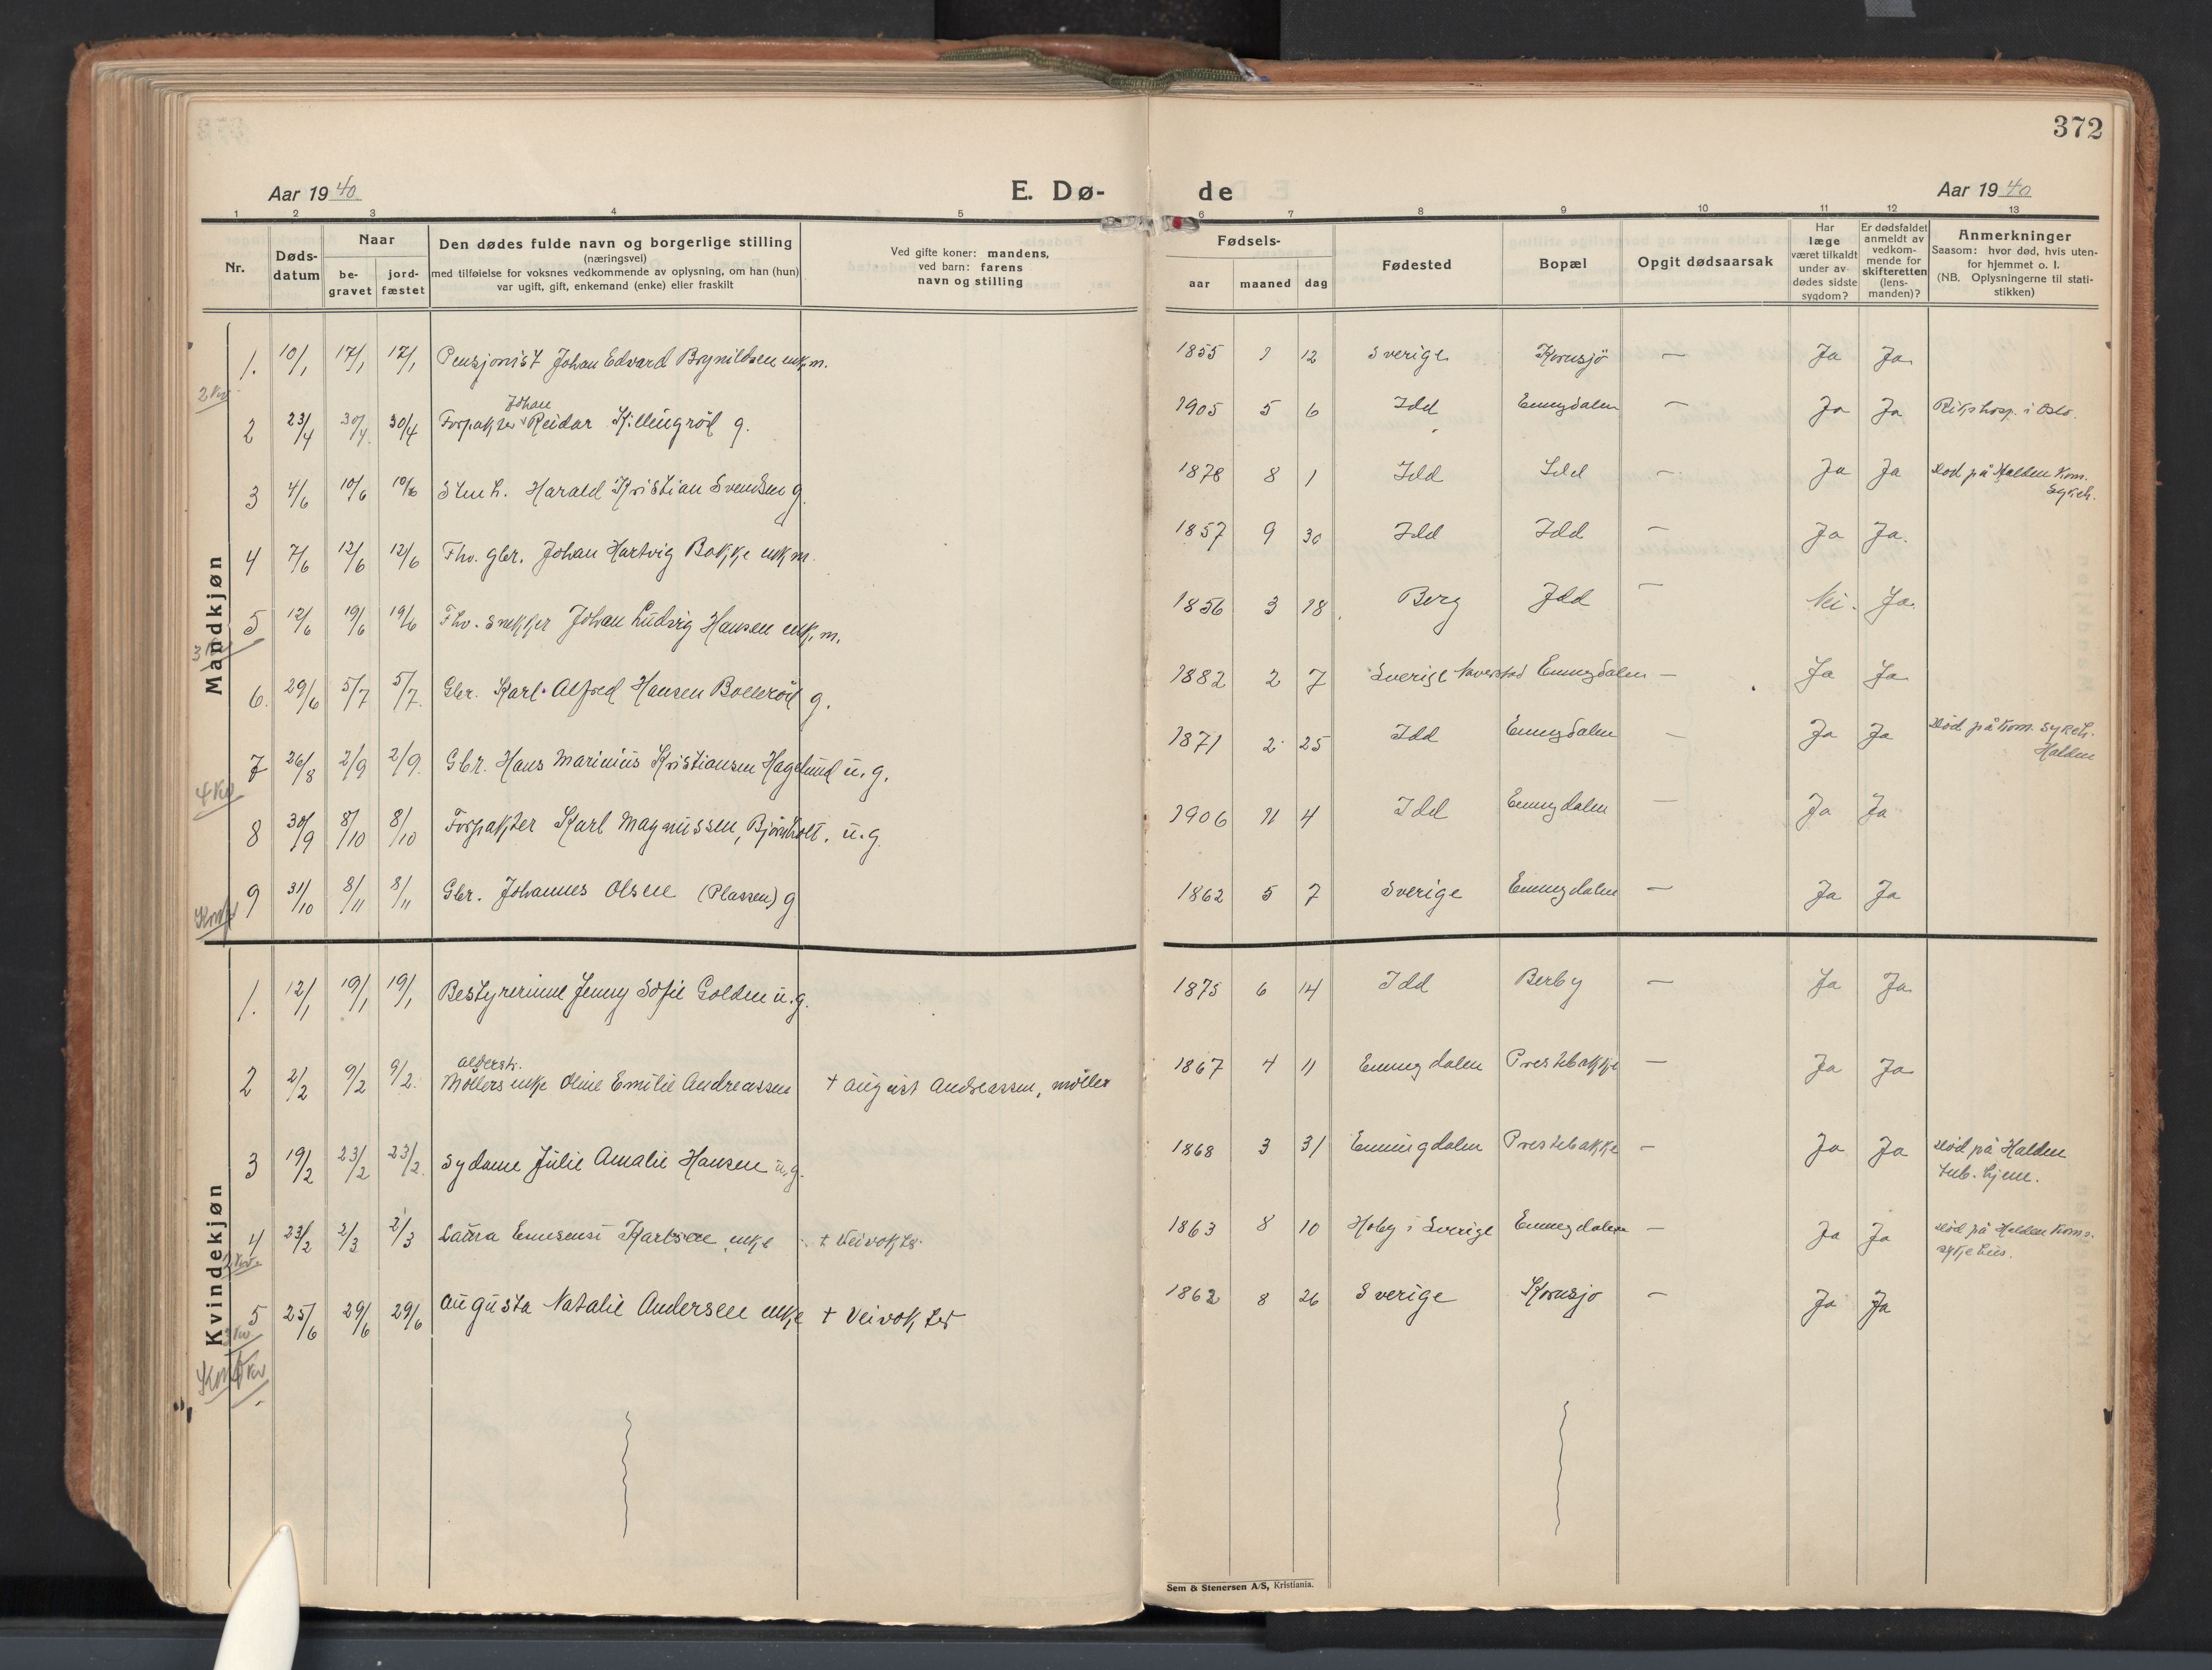 372
Aar 1940
E. Dø-
de
Aar 1940
1 2 3 4 5 6 7 8 9 10 11 12 13
Nr.
Døds-
datum
Naar
be-
gravet
jord-
fæstet
Den dødes fulde navn og borgerlige stilling
(næringsvei)
med tilføielse for voksnes vedkommende av oplysning, om han (hun)
var ugift, gift, enkemand (enke) eller fraskilt
Ved gifte koner: mandens,
ved barn: farens
navn og stilling
Fødsels-
aar maaned dag
Fødested
Bopæl
Opgit dødsaarsak
Har
læge
været tilkaldt
under av-
dødes sidste
sygdom?
Er dødsfaldet
anmeldt av
vedkom-
mende for
skifteretten
(lens-
manden)?
Anmerkninger
Saasom: hvor død, hvis uten-
for hjemmet o. l.
(NB. Oplysningerne til stati-
stikken)
Mandkjøn
1. 10/1 17/1 17/1 Pensjonist Johan Edvard Brynildsen enkm. 1855 12 Sverige Kornsjø — Ja Ja
2 Kv.
Johan
2 23/4 30/4 30/4 Forpakter Reidar Killingrød g. 1905 5 6 Idd Enningdalen — Ja Ja Rikshosp. i Oslo.
3 4/6 10/6 10/6 Harald Kristian Svendsen g 1878 8 1 Idd Idd — Ja Ja Død på Halden Kom.
Sykeh.
4 7/6 12/6 12/6 Fhv. gbr. Johan Hartvig Bakke enkm. 1857 9 30 Idd Idd — Ja Ja.
5 12/6 19/6 19/6 Fhv. snekker Johan Ludvig Hansen enk.m. 1856 3 18 Berg Idd — Nei. Ja.
6. 29/6 5/7 5/7. Gbr. Karl Alfred Hansen Bollerød g. 1882 2 7 Sverige Naverstad Enningdalen — Ja Ja
7 26/8 2/9 2/9. Gbr. Hans Marinius Kristiansen Hagelund u.g. 1871 2 25 Idd Enningdalen — Ja Ja Død på Kom. Sykeh.
Halden
4 Kv
8 30/9 8/10 8/10 Forpakter Karl Magnussen, Bjørnholt. u.g. 1906 11 4 Idd Enningdalen — Ja Ja
9 31/10 8/11 8/11 Gbr. Johannes Olsen (Plassen) g 1862 5 7 Sverige Enningdalen — Ja Ja
Kvindekjøn
1. 12/1 19/1 19/1 Bestyrerinne Jenny Sofie Golden u.g. 1875 6 14 Idd Berby — Ja Ja
alderstr.
2 2/2 9/2 9/2. Møllers enke Oline Emilie Andreassen + August Andreassen, møller 1867 4 11 Enningdalen Prestebakke — Ja Ja
3 19/2 23/2 23/2. Sydame Julie Amalie Hansen u.g. 1868 3 31 Enningdalen Prestebakke — Ja Ja Død på Halden
tub. hjem.
4 23/2 2/3 2/3 Laura Karlsen enke + Veivokter 1863 8 10 i Sverige Enningdalen — Ja Ja Død på Halden Kom.
sykehus.
5 25/6 29/6 29/6 Augusta Natalie Andersen enke + Veivokter 1862 8 26 Sverige Kornsjø — Ja Ja
3 Kv
Sem & Stenersen A/S, Kristiania.